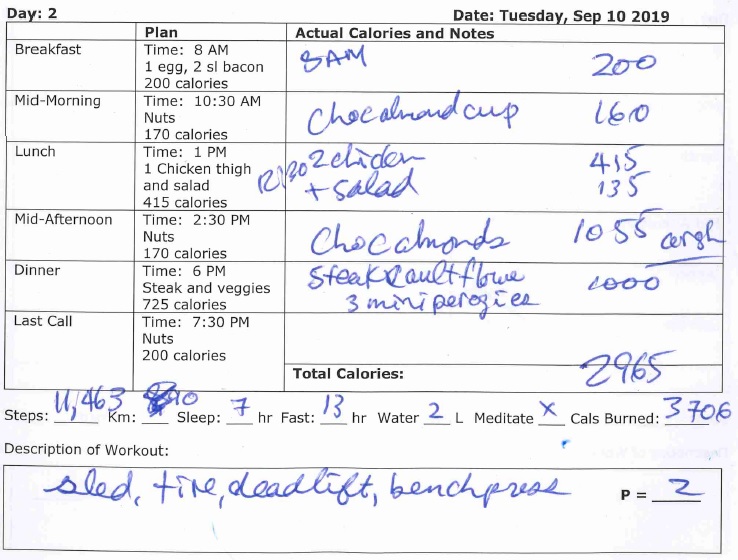 Day: 2 Date: Tuesday, Sep 10 2019
Plan Actual Calories and Notes
Breakfast Time: 8 AM 8AM 200
1 egg, 2 sl bacon
200 calories
Mid-Morning Time: 10:30 AM Choc almond cup 160
Nuts
170 calories
Lunch Time: 1 PM 12:30 2 chicken 415
1 Chicken thigh + salad 135
and salad
415 calories
Mid-Afternoon Time: 2:30 PM Choc almonds 1055 argh
Nuts
170 calories
Dinner Time: 6 PM Steak cauliflower 1000
Steak and veggies 3 mini perogies
725 calories
Last Call Time: 7:30 PM
Nuts
200 calories
Total Calories: 2965
Steps: 11,463 Km: 10 Sleep: 7 hr Fast: 13 hr Water 2 L Meditate X Cals Burned: 3706
Description of Workout:
sled, tire, deadlift, benchpress P = 2